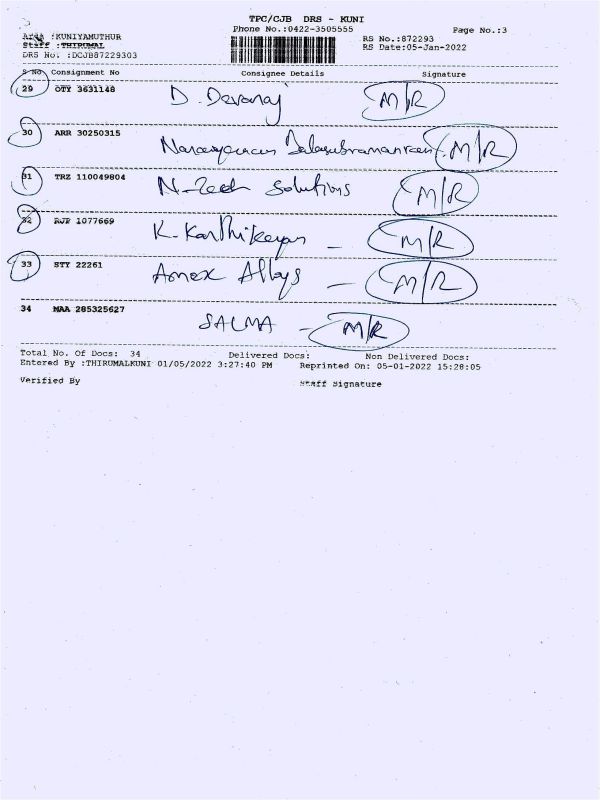 TPC/CJB DRS - KUNI
Phone No.:0422-3505555
Page No.:3
Area :KUNIYAMUTHUR
RS No.:872293
Staff :THIRUMAL
RS Date:05-Jan-2022
DRS No. :DCJB87229303
S No Consignment No Consignee Details Signature
29 OTY 3631148 D. Devaraj M/R
30 ARR 30250315 Narayanan Balasubramanian M/R
31 TRZ 110049804 N-Tech Solutions M/R
32 RJP 1077669 K. Karthikeyan - M/R
33 STY 22261 Amex Alloys - M/R
34 MAA 285325627 SALMA - M/R
Total No. Of Docs: 34 Delivered Docs: Non Delivered Docs:
Entered By :THIRUMALKUNI 01/05/2022 3:27:40 PM Reprinted On: 05-01-2022 15:28:05
Verified By Staff Signature